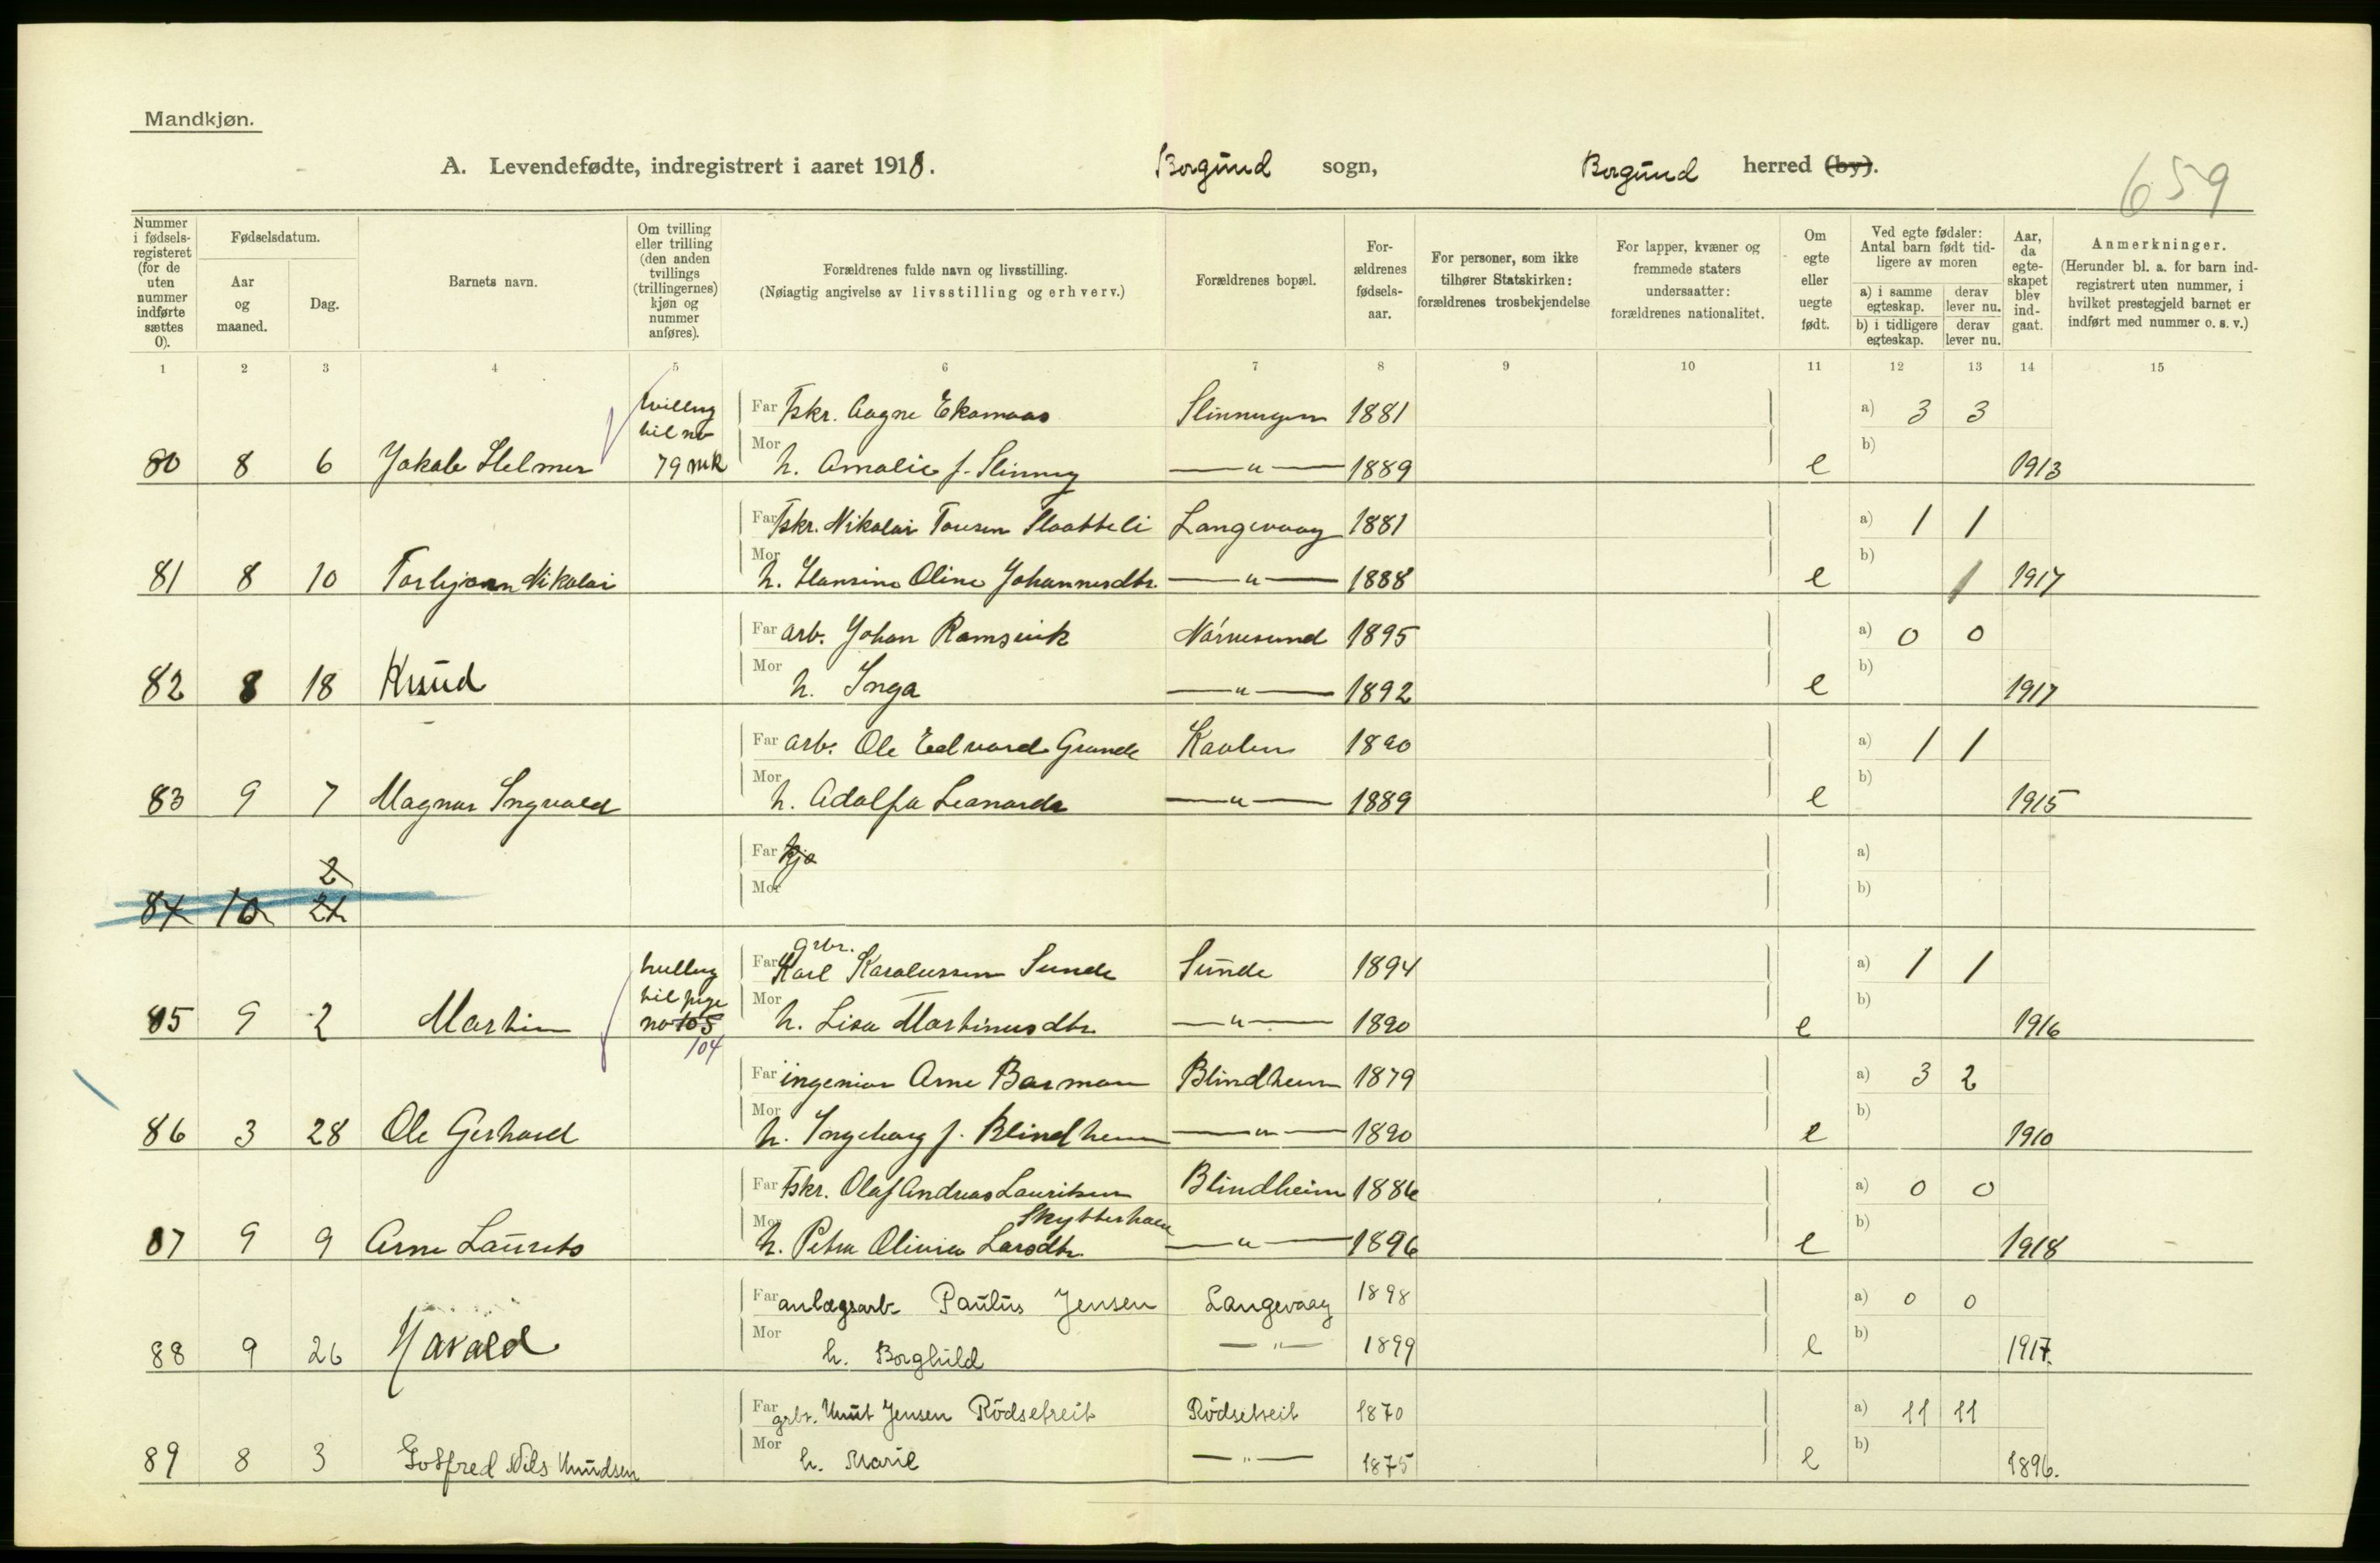 Mandkjøn.
A. Levendefødte, indregistrert i aaret 1918. Borgund sogn, Borgund herred (by).
659
Nummer i fødselsregisteret (for de uten nummer indførte sættes 0).
Fødselsdatum.
Aar og maaned.
Dag.
Barnets navn.
Om tvilling eller trilling (den anden tvillings (trillingernes) kjøn og nummer anføres).
Forældrenes fulde navn og livsstilling.
(Nøiagtig angivelse av livsstilling og erhverv.)
Forældrenes bopæl.
Forældrenes fødselsaar.
For personer, som ikke tilhører Statskirken: forældrenes trosbekjendelse
For lapper, kvæner og fremmede staters undersaatter: forældrenes nationalitet.
Om egte eller uegte født.
Ved egte fødsler: Antal barn født tidligere av moren
a) i samme egteskap.
derav lever nu.
b) i tidligere egteskap.
derav lever nu.
Aar, da egteskapet blev indgaat.
Anmerkninger.
(Herunder bl. a. for barn indregistrert uten nummer, i hvilket prestegjeld barnet er indført med nummer o. s. v.)
1 2 3 4 5 6 7 8 9 10 11 12 13 14 15
tvilling til no 79 mk
Far Fskr. Aagne 1881 a) 3 3
80 8 6 Jakob Helmer Mor h. Amalie f. Slinning —"— 1889 e b) 1913
Far Fskr. Nikolai Slaatteli Langevaag 1881 a) 1 1
81 8 10 Torbjørn Nikolai Mor h. Hansine Oline Johannesdtr. —"— 1888 e b) 1 1917
Far arb. Johan Ramsvik Nörvesund 1895 a) 0 0
82 8 18 Knud Mor h. Inga —"— 1892 e b) 1917
Far arb. Ole Edvard Grande 1890 a) 1 1
83 9 7 Magnar Ingvald Mor h. Adolfa Leonarda —"— 1889 e b) 1915
Far a)
2
84 10 Mor b)
tvilling til pige no 105 104
Far grbr. Karl Karolussen Sunde Sunde 1894 a) 1 1
85 9 2 Martin Mor h. Lisa Martinusdtr. —"— 1890 e b) 1916
Far ingeniør Arne Barman Blindheim 1879 a) 3 2
86 3 28 Ole Gerhard Mor h. Ingeborg f. Blindheim —"— 1890 e b) 1910
Far Fskr. Olaf Andreas Lauritsen Blindheim 1886 a) 0 0
Skytterholm
87 9 9 Arne Laurits Mor h. Petra Olivia Larsdtr. —"— 1896 e b) 1918
Far anlægsarb. Paulus Jensen Langevaag 1898 a) 0 0
88 9 26 Harald Mor h. Borghild —"— 1899 e b) 1917.
Far grbr. Knut Jensen Rödsetreit Rödsetreit 1870 a) 11 11
89 8 3 Gotfred Nils Knudsen Mor h. Marie —"— 1875 e b) 1896.